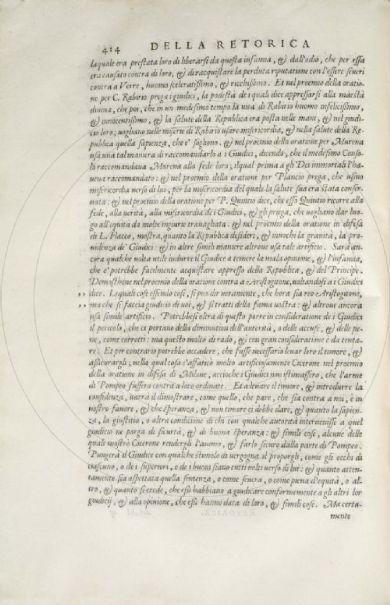 414 DELLA RETORICA
la quale era prestata loro di liberarsi da questa infamia, & dall'odio, che per essa
era causato contra di loro, & di racquistare la perduta riputatione con l'essere severi
contra a Verre, huomo sceleratissimo, & ricchissimo. Et nel proemio della oratione
per C. Rabirio prega i giudici, la potestà de i quali dice appressarsi alla maestà
divina, che poi, che in un medesimo tempo la vita di Rabirio huomo infelicissimo,
& innocentissimo, & la salute della Republica era posta nelle mani, & nel giudi
cio loro; vogliano nelle miserie di Rabirio usare misericordia, & nella salute della Re
publica quella sapienza, che e' sogliono. & nel proemio della oratione per Murena
usa una tal maniera di raccomandarlo a i Giudici, dicendo, che il medesimo Conso
lo raccomandava Murena alla fede loro, il qual prima a gli Dei immortali l'ha
veva raccomandato: & nel proemio della oratione per Plancio prega, che usino
misericordia verso di lui, per la misericordia del quale la salute sua era stata conser
vata: & nel proemio della oratione per P. Quintio dice, che esso Quintio ricorre alla
fede, alla verità, alla misericordia de i Giudici, & gli pruega, che vogliano dar luo
go all'equità da molte ingiurie travagliata: & nel proemio della oratione in difesa
di L. Flacco, mostra, quanto la Republica desideri, & numeri la gravità, la pru
videnza de' Giudici: & in altre simili maniere altrove usa tale artificio. Sarà an
cora qualche volta utile indurre il Giudice a temere la mala opinione, & l'infamia,
che e' potrebbe facilmente acquistare appresso della Republica, & del Principe.
Demosthene nel proemio della oratione contra a Aristogitone, voltandosi a i Giudici
dice. La qual cosa essendo così, si può dir veramente, che hora sia reo Aristogitone,
ma che si faccia giudicio di voi, & si tratti della fama vostra: & altrove ancora
usa simile artificio. Potrebbesi oltra di questo porre in consideratione de i Giudici
il pericolo, che ci portano della diminution dell'autorità, & delle accuse, & delle pe
ne, come corrotti: ma questo molto di rado, & con gran consideratione è da tenta
re: Et per contrario potrebbe accadere, che fusse necessario levar loro il timore, &
assicurargli; nella qual cosa s'affaticò molto artificiosamente Cicerone nel proemio
della oratione in difesa di Milone, accioche i Giudici non istimassero, che l'arme
di Pompeo fussero contra a loro ordinate. Et a levare il timore, & introdurre la
confidenza, varrà il dimostrare, come quello, che pare, che sia contra a noi, è in
nostro favore, & che speranza, & non timore ci debbe dare, & quanto la sapien
za, la giustitia, o altra conditione di chi con qualche autorità intervenisse a quel
giudicio ne porga di sicurtà, & di buona speranza: & simili cose, alcune delle
quali mostrò Cicerone rendergli l'animo, & farlo sicuro dalla parte di Pompeo.
Pungerà il Giudice con qualche stimolo di vergogna il proporgli, come gli occhi di
ciascuno, o de i superiori, o de i buoni siano tutti volti verso di lui: & quanto atten
tamente sia aspettata quella sentenza, o come severa, o come piena d'equità, o al-
tro, & quanto si crede, che essi habbiano a giudicare conformemente a gli altri lor
giudicij, & alla opinione, che essi hanno data di loro, & simili cose. Ma certa-
mente